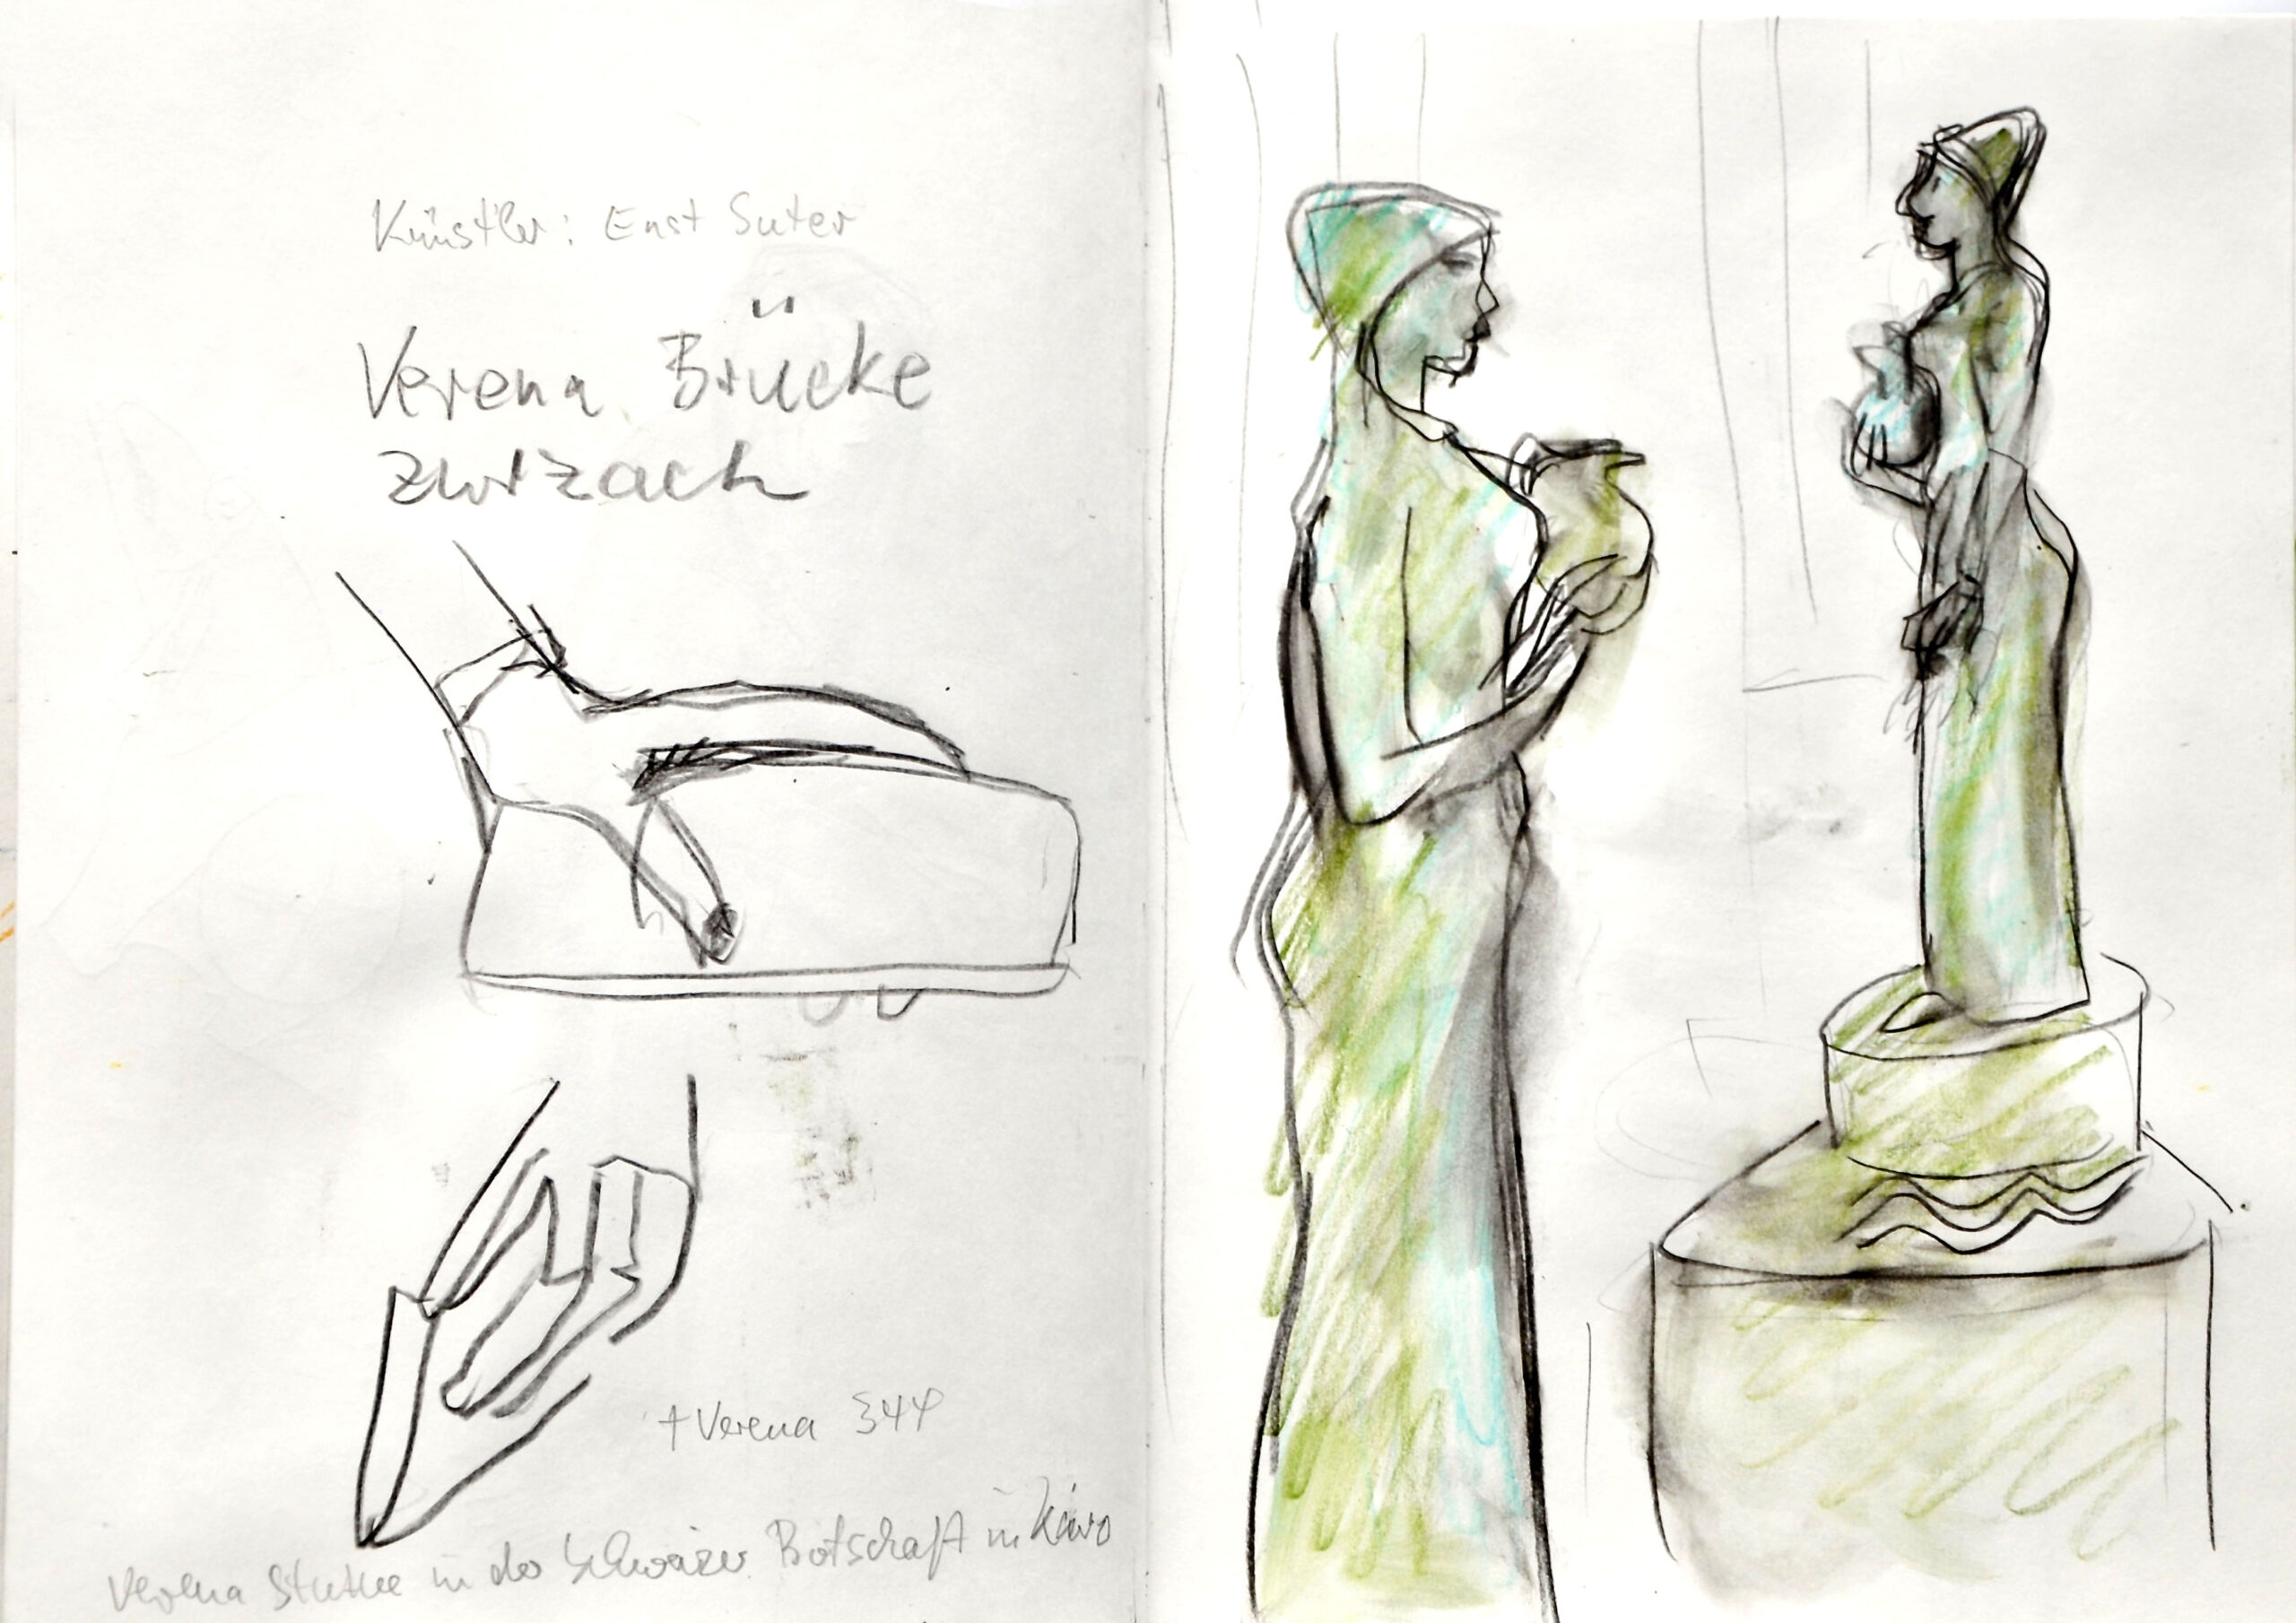 Künstler: Enst Suter
Verena Brücke
Zurzach
† Verena 344
Verena Statue in der Schweizer Botschaft in Kairo